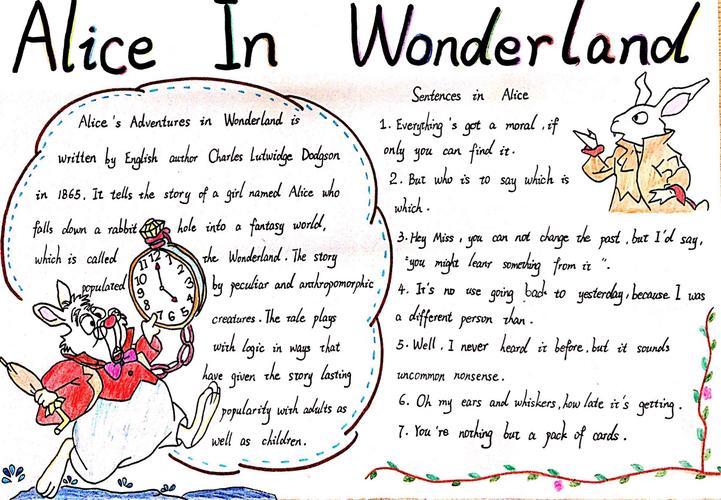 Alice In Wonderland
Alice's Adventures in Wonderland is
written by English author Charles Lutwidge Dodgson
in 1865. It tells the story of a girl named Alice who
falls down a rabbit hole into a fantasy world,
which is called the Wonderland. The story
populated by peculiar and anthropomorphic
creatures. The tale plays
with logic in ways that
have given the story lasting
popularity with adults as
well as children.
12
1
2
3
4
5
6
7
8
9
10
11
Sentences in Alice
1. Everything's got a moral, if
only you can find it.
2. But who is to say which is
which.
3. Hey Miss, you can not change the past, but I'd say,
"you might leanr something from it".
4. It's no use going back to yesterday, because I was
a different person than.
5. Well, I never heard it before, but it sounds
uncommon nonsense.
6. Oh my ears and whiskers, how late it's getting.
7. You're nothing but a pack of cards.